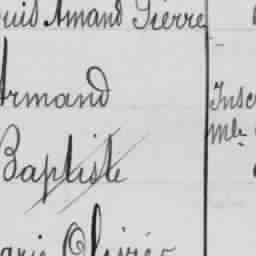 ouis Amand Pierre
Armand
Baptiste
arie Olivier
Inse
Mle